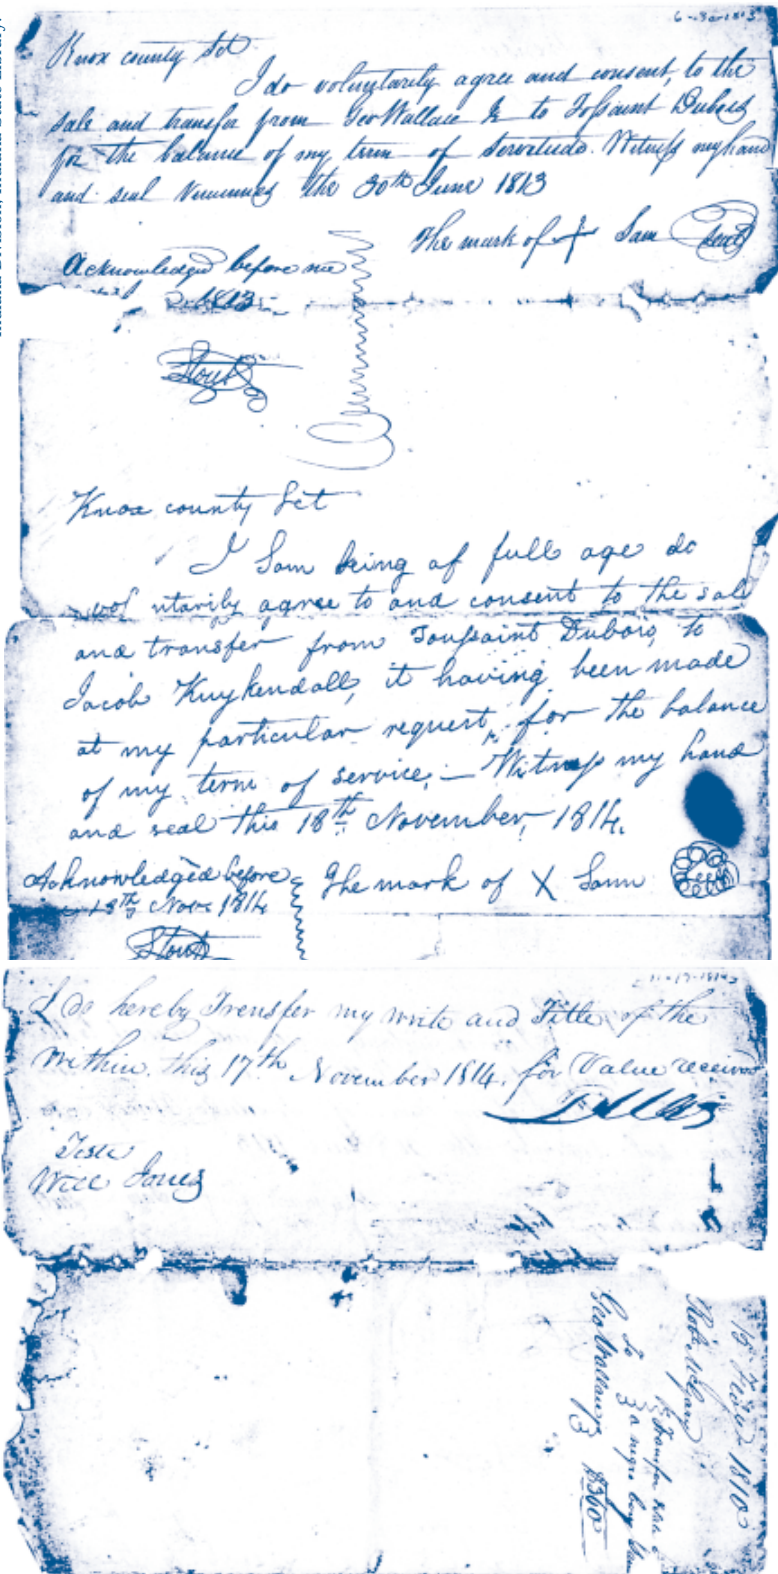 6-30-1813
Knox county Sct
I do voluntarily agree and consent, to the
sale and transfer from Geo Wallace Jr to Tossaint Dubois
for the balance of my term of Servitude. Witness my hand
and seal Vincennes the 30th June 1813
The mark of + Sam Seal
Acknowledged before me
1813
Stout
Knox county Sct
I Sam being of full age do
vol ntarily agree to and consent to the sale
and transfer from Toussaint Dubois, to
Jacob Kuykendall, it having been made
at my particular request, for the balance
of my term of service; — Witness my hand
and seal this 18th November, 1814.
Acknowledged before
The mark of X Sam Seal
18th Nov. 1814
Stout
11-17-1814
I do hereby Transfer my write and Title of the
within this 17th November 1814. for Value received
Teste
Will Jones
15 1810
Robt
Transfer
To a negro boy Sam
Geo Wallace Jr
$360